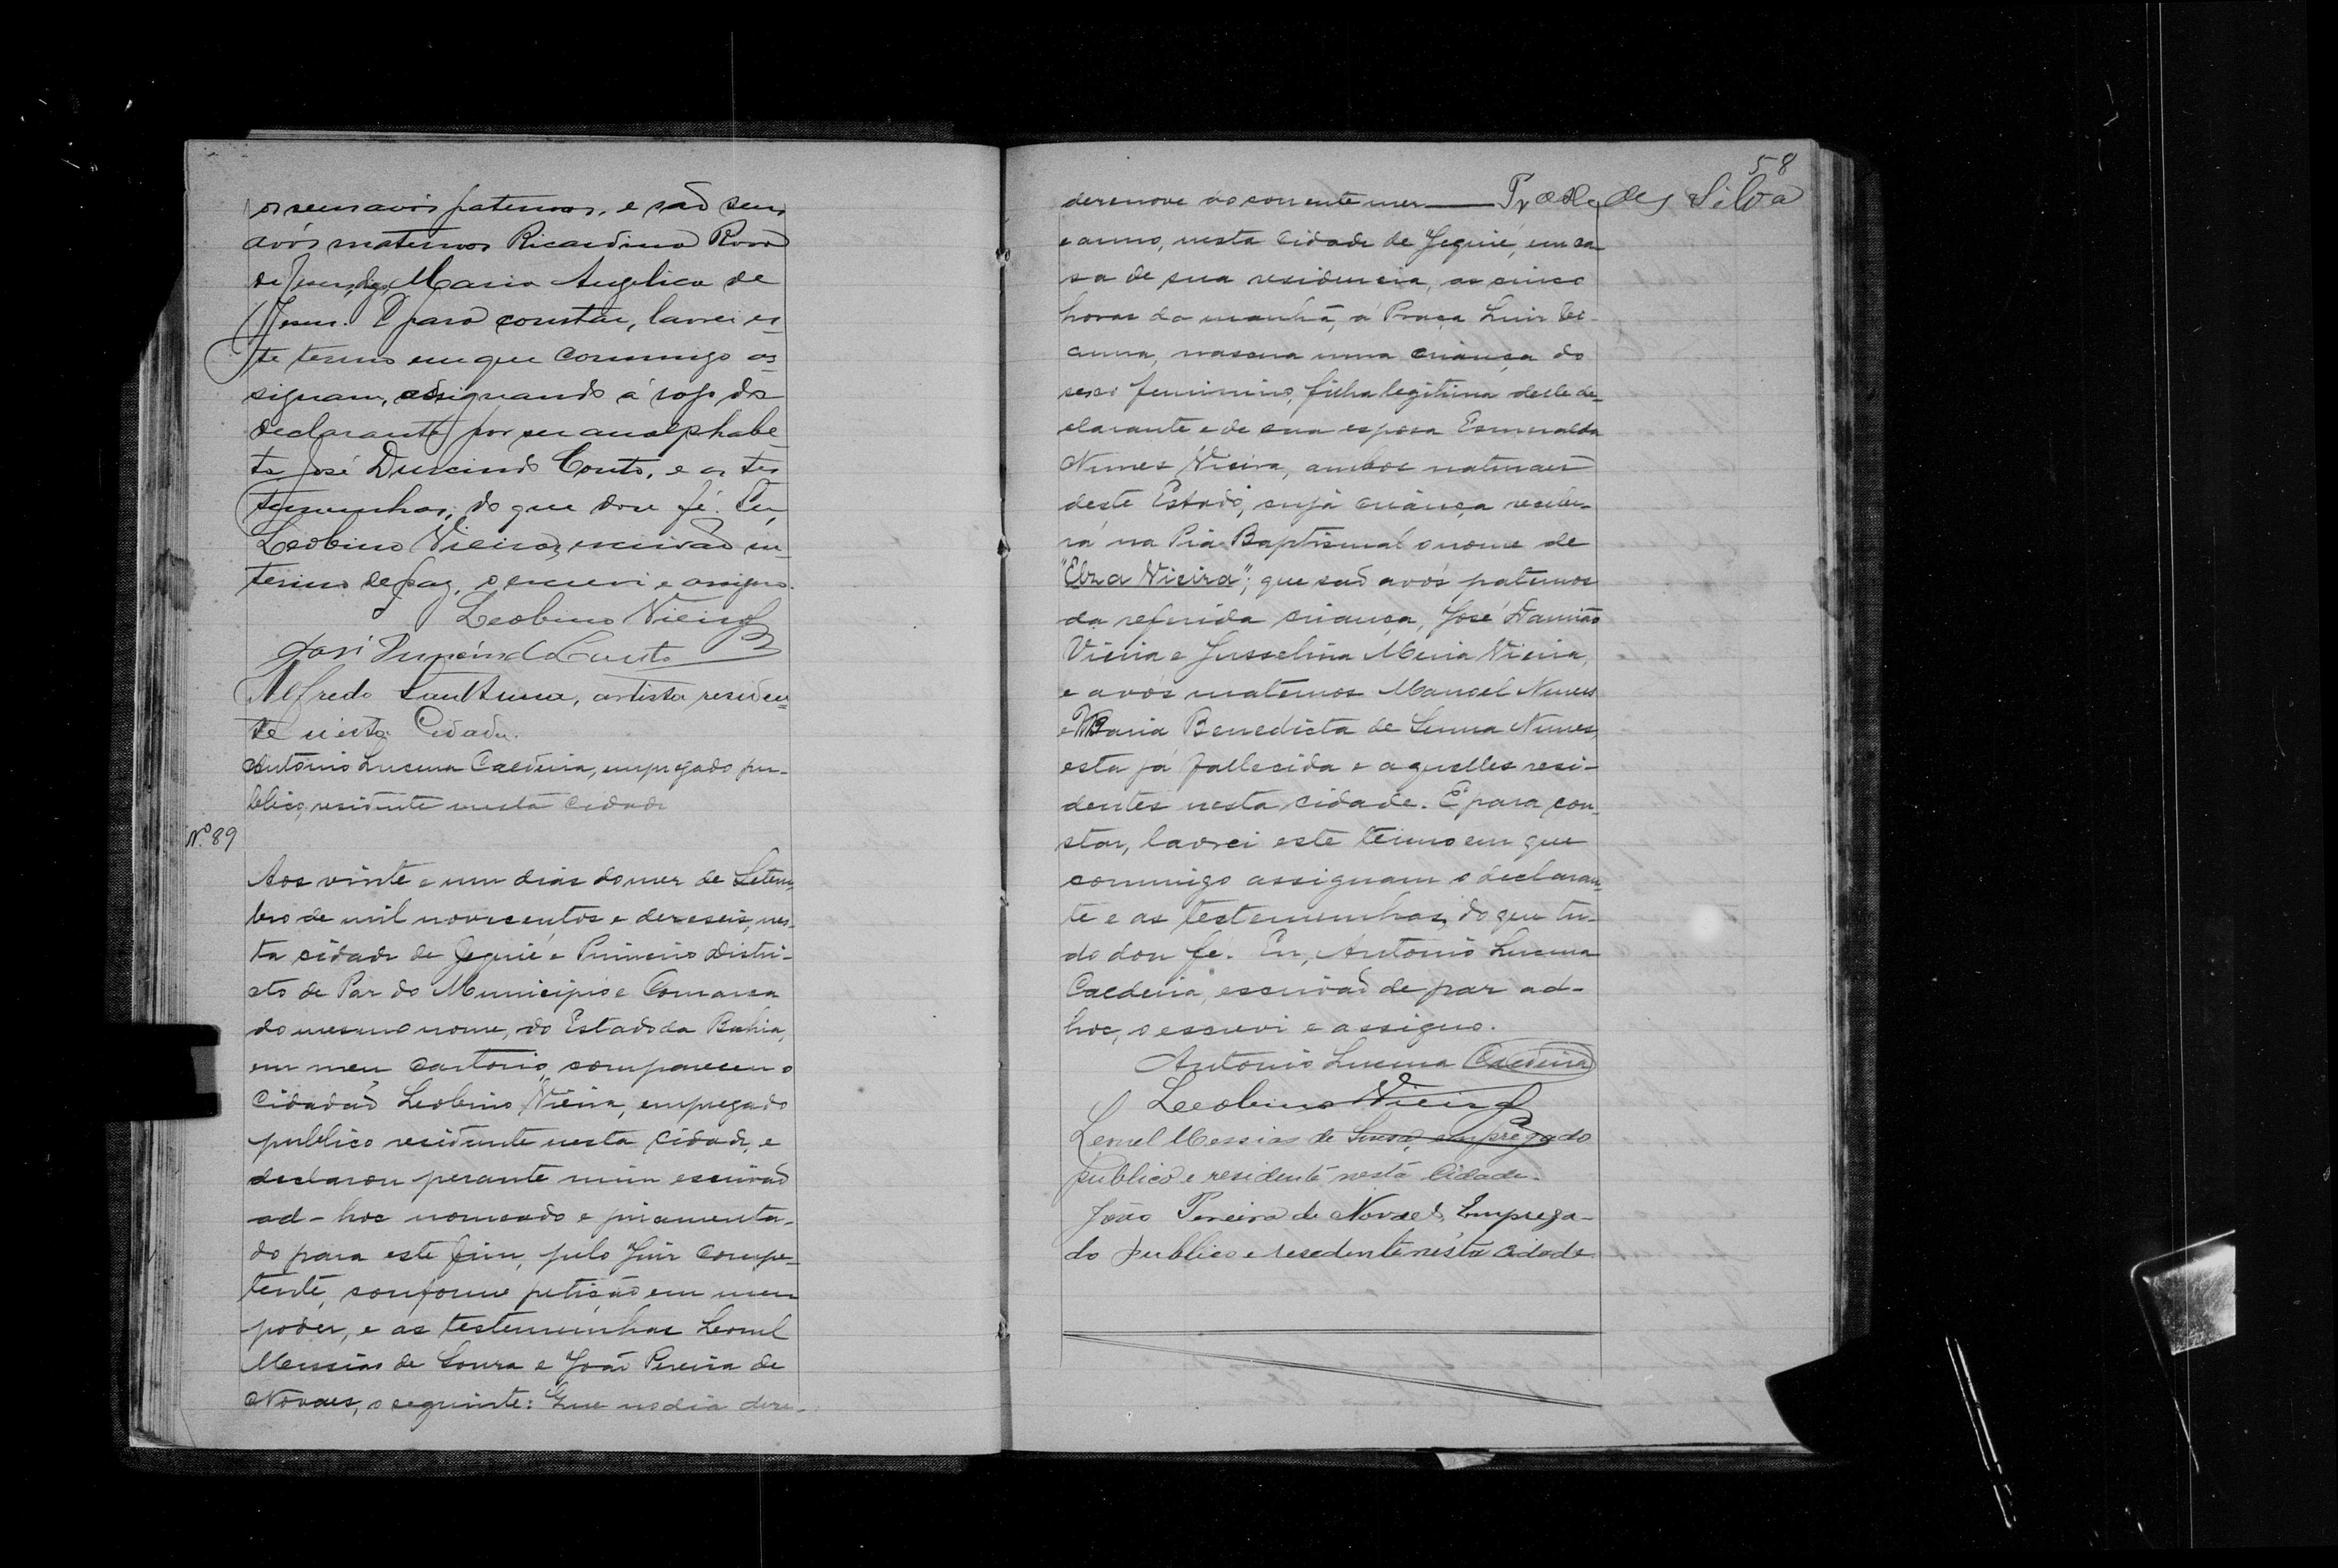 os seus avós paternos, e são seus
avós maternos Ricardina Rosa
de Jesus, digo, Maria Angelica de
Jesus. E para constar, lavrei es-
te termo em que commigo as-
signam, assignando á rogo do
declarante por ser analphabe-
to José Durcindo Couto, e as tes
temunhas, do que dou fé. Eu,
Leobino Vieira, escrivão in-
terino de paz, o escrevi e assigno.
Leobino Vieira
José Durcindo Couto
Alfredo Sant'Anna, artista residen-
te nesta Cidade.
Antonio Lucena Caldeira, empregado pu-
blico, residente nesta cidade
Nº 89
Aos vinte e um dias do mez de Setem-
bro de mil novecentos e dezeseis, nes-
ta cidade de Jequié e Primeiro Distri-
cto de Paz do Municipio e Comarca
do mesmo nome, do Estado da Bahia,
em meu Cartorio, compareceu o
Cidadão Leobino Vieira, empregado
publico residente nesta cidade, e
declarou perante mim escrivão
ad-hoc nomeado e juramenta-
do para este fim, pelo Juiz Compe-
tente, conforme petição em meu
poder, e as testemunhas Leonel
Messias de Souza e João Pereira de
Novaes, o seguinte: Que no dia deze-
58
dezenove do corrente mez — Silva
e anno, nesta Cidade de Jequié, em ca
sa de sua residencia, as cinco
horas da manhã, á Praça Luiz Vi-
anna, nascera uma criança do
sexo feminino, filha legitima delle de-
clarante e de sua esposa Esmeralda
Nunes Vieira, ambos naturaes
deste Estado, cuja criança recebe-
rá na Pia Baptismal o nome de
"Elza Vieira"; que são avós paternos
da referida criança, José Damião
Vieira e Jusselina Maria Vieira,
e avós maternos Manoel Nunes
e Maria Benedicta de Senna Nunes,
esta já fallecida e aquelles resi-
dentes nesta cidade. E para con-
star, lavrei este termo em que
commigo assignam o declaran-
te e as testemunhas, do que tu-
do dou fé. Eu, Antonio Lucena
Caldeira, escrivão de paz ad-
hoc, o escrevi e assigno.
Antonio Lucena Caldeira
Leobino Vieira
Leonel Messias de Souza, empregado
publico e residente nesta Cidade.
João Pereira de Novaes, Emprega-
do publico e resedente nésta cidade.